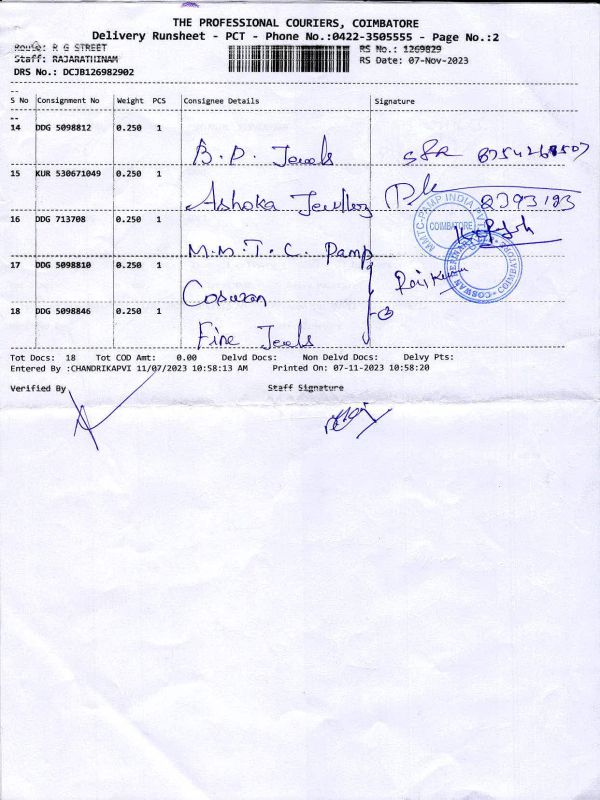 THE PROFESSIONAL COURIERS, COIMBATORE
Delivery Runsheet - PCT - Phone No.:0422-3505555 - Page No.:2
Route: R G STREET
Staff: RAJARATHINAM
DRS No.: DCJB126982902
RS No.: 1269829
RS Date: 07-Nov-2023
S No Consignment No Weight PCS Consignee Details Signature
14 DDG 5098812 0.250 1
B.P. Jewels
15 KUR 530671049 0.250 1
Ashoka
8393193
16 DDG 713708 0.250 1
M.M.T.C. Pamp
MMTC-PAMP INDIA PVT
COIMBATORE
17 DDG 5098810 0.250 1
18 DDG 5098846 0.250 1
Fine Jewels
Tot Docs: 18 Tot COD Amt: 0.00 Delvd Docs: Non Delvd Docs: Delvy Pts:
Entered By :CHANDRIKAPVI 11/07/2023 10:58:13 AM Printed On: 07-11-2023 10:58:20
Verified By Staff Signature